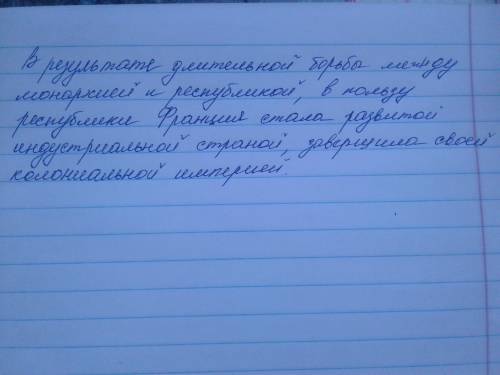 В результате длительной борьбы между
монархией и республикой, в пользу
республики Франция стала развитой
индустриальной страной, завершила своей
колониальной империей.